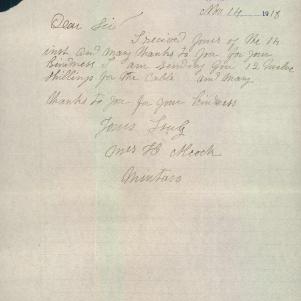 Nov 14 1918
Dear Sir
I received yours of the 14
inst and many thanks to you for your
kindness I am sending you 12 Twelve
shillings for the Cable and many
thanks to you for your kindness
Yours Truly
Mrs H
Mintaro